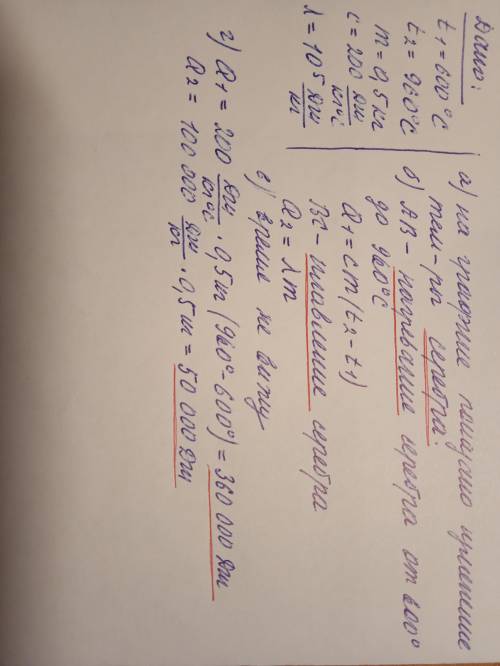 Дано:
t₁=600°С
t₂=960°С
m=0,5кг
с=200 Дж/кг°С
λ=10⁵ Дж/кг
а) на графике показано изменение
тем-ры серебра.
б) АВ- нагревание серебра от 600°
до 960°С
Q₁=cm(t₂-t₁)
ВС- плавление серебра
Q₂=λm
в) время не вижу
г) Q₁=200 Дж/кг°С ·0,5кг(960°-600°)=360 000 Дж
Q₂=100 000 Дж/кг ·0,5кг=50 000 Дж